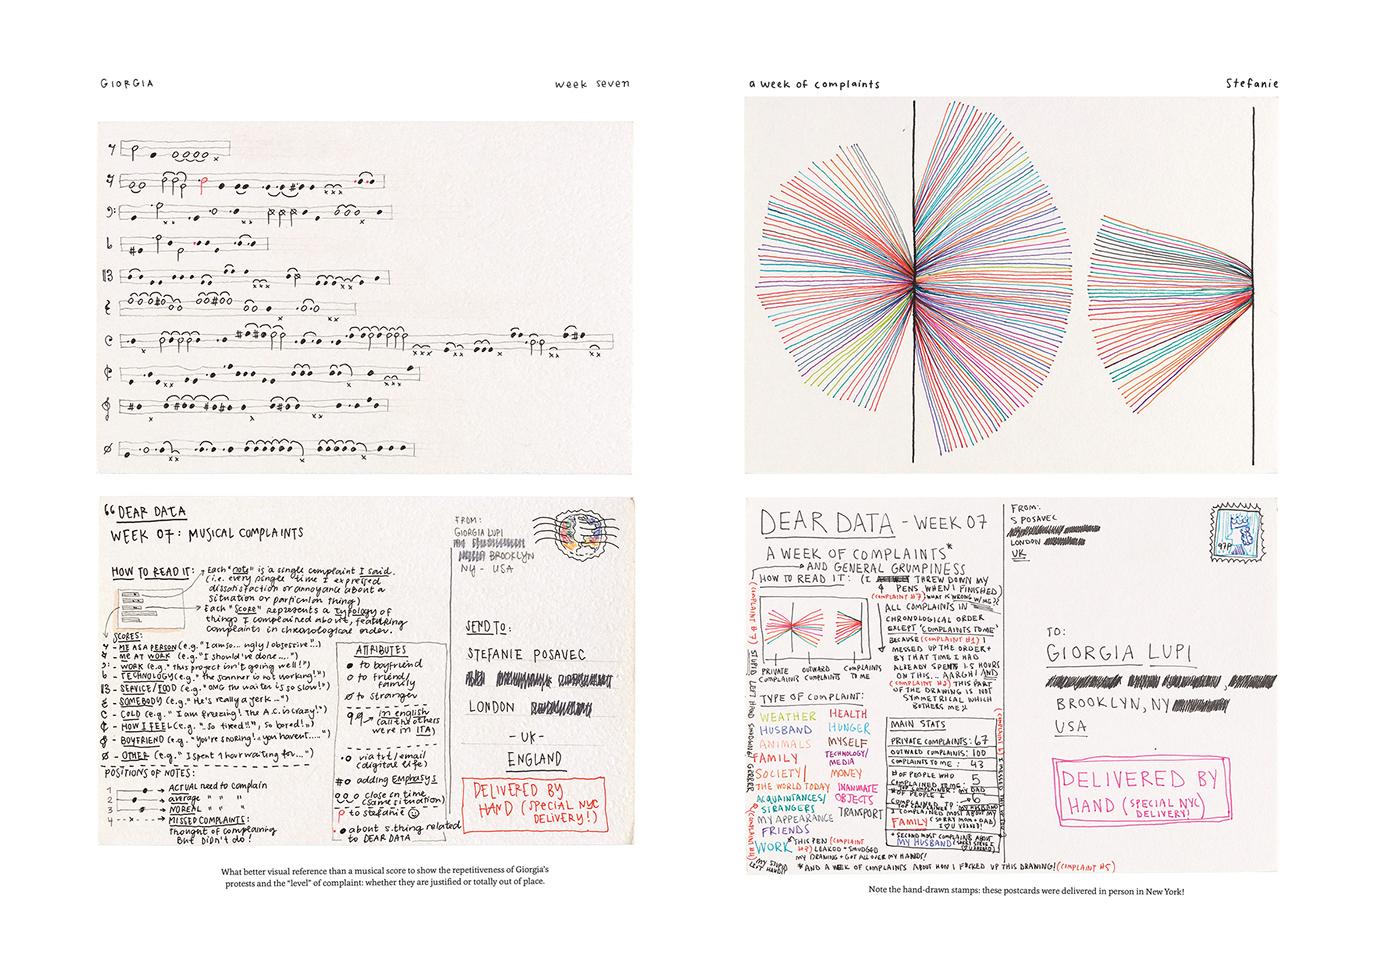 GIORGIA
week seven
"DEAR DATA
WEEK 07: MUSICAL COMPLAINTS
HOW TO READ IT:
Each "note" is a single complaint I said.
(i.e. every single time I expressed
dissatisfaction or annoyance about a
situation or particular thing)
Each "SCORE" represents a typology of
things I complained about, featuring
complaints in chronological order.
SCORES:
- ME AS A PERSON (e.g. "I am so... ugly / obsessive"...)
- ME AT WORK (e.g. "I should've done....")
- WORK (e.g. "this project isn't going well!")
- TECHNOLOGY (e.g. "the scanner is not working!")
- SERVICE/FOOD (e.g. "OMG the waiter is so slow!")
- SOMEBODY (e.g. "He's really a jerk...")
- COLD (e.g. "I am freezing! The A.C. is crazy!")
- HOW I FEEL (e.g. "so tired!!", so bored!)
- BOYFRIEND (e.g. "you're snoring! you haven't.....")
- OTHER (e.g. "I spent 1 hour waiting for...")
POSITIONS OF NOTES:
1 ACTUAL need to complain
2 average " " "
3 NOREAL " " "
4 MISSED COMPLAINTS:
thought of complaining
but didn't do!
ATTRIBUTES
to boyfriend
to friend/
family
to stranger
in english
(all the others
were in ITA)
via txt/email
(digital life)
adding EMPHASYS
close on time
(same situation)
to stefanie
about s.thing related
to DEAR DATA
FROM:
GIORGIA LUPI
BROOKLYN
NY - USA
SEND TO:
STEFANIE POSAVEC
LONDON
- UK -
ENGLAND
DELIVERED BY
HAND (SPECIAL NYC
DELIVERY!)
What better visual reference than a musical score to show the repetitiveness of Giorgia's
protests and the "level" of complaint: whether they are justified or totally out of place.
a week of complaints
Stefanie
DEAR DATA - WEEK 07
A WEEK OF COMPLAINTS*
AND GENERAL GRUMPINESS
HOW TO READ IT: (I THREW DOWN MY
PENS WHEN I FINISHED)
(COMPLAINT #7) WHAT IS WRONG W/ME??
ALL COMPLAINTS IN
CHRONOLOGICAL ORDER
EXCEPT 'COMPLAINTS TO ME'
BECAUSE (COMPLAINT #1) I
MESSED UP THE ORDER +
BY THAT TIME I HAD
ALREADY SPENT 1.5 HOURS
ON THIS... AARGH! AND
(COMPLAINT #2) THIS PART
OF THE DRAWING IS NOT
SYMMETRICAL WHICH
BOTHERS ME
PRIVATE COMPLAINTS
OUTWARD COMPLAINTS
COMPLAINTS TO ME
TYPE OF COMPLAINT:
WEATHER
HUSBAND
ANIMALS
FAMILY
SOCIETY/
THE WORLD TODAY
ACQUAINTANCES/
STRANGERS
MY APPEARANCE
FRIENDS
WORK
HEALTH
HUNGER
MYSELF
TECHNOLOGY/
MEDIA
MONEY
INANIMATE
OBJECTS
TRANSPORT
MAIN STATS
PRIVATE COMPLAINTS: 67
OUTWARD COMPLAINTS: 100
COMPLAINTS TO ME: 43
# OF PEOPLE WHO
COMPLAINED TO ME: 5
# OF PEOPLE I
COMPLAINED TO: 6
I COMPLAINED MOST ABOUT MY
FAMILY (SORRY MOM + DAD)
I ♡ U YOU!
* SECOND MOST COMPLAINED ABOUT
MY HUSBAND
*THIS PEN (COMPLAINT
LEAKED + SMUDGED
MY DRAWING + GOT ALL OVER MY HANDS!
(COMPLAINT #7) STUPID LEFT HAND SMUDGING
(COMPLAINT #4)
MY STUPID
LEFT HAND!!
*AND A WEEK OF COMPLAINTS ABOUT HOW I F*CKED UP THIS DRAWING! (COMPLAINT #5)
FROM:
S POSAVEC
LONDON
UK
97P
TO:
GIORGIA LUPI
BROOKLYN, NY
USA
DELIVERED BY
HAND (SPECIAL NYC
DELIVERY)
Note the hand-drawn stamps: these postcards were delivered in person in New York!